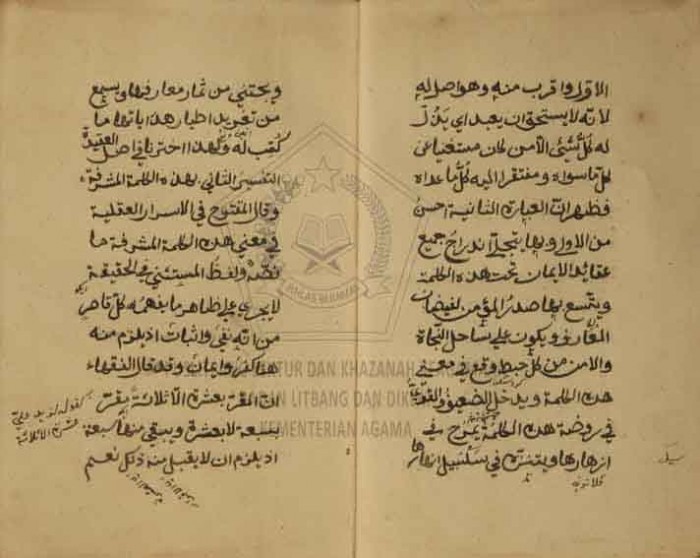 الاولى واقرب منه وهو اصل له
لانه لا يستحق ان يعبد اي يذل
له كل شيئ الا من كان مستغنيا عن
كل ما سواه ومفتقرا اليه كل ما عداه
فظهر ان العبارة الثانية احسن
من الاولى وبها ينجلي اندراج جميع
عقائد الايمان تحت هذه الكلمة
ويتسع بها صدر المؤمن لفيضان
المعارف ويكون على ساحل النجاة
والامن من كل خبط وقع في معنى
هذه الكلمة ويدخل الضعيف والقوي
في روضة هذه الكلمة يمرح في
ازهارها ويتنزه في سلسبيل انهارها
ويجتني من ثمار معارفها ويسمع
من تغريد اطيار هداياتها ما
كتب له ولهذا اخترنا في اصل العقيدة
التفسير الثاني لهذه الكلمة المشرفة
وقال المقترح في الاسرار العقلية
في معنى هذه الكلمة المشرفة ما
نصه ولفظ المستثنى في الحقيقة
لا يجري على ظاهر ما يفهمه كل قاصر
من انه نفي واثبات اذ يلزم منه
هنا كفر وايمان وقد قال الفقهاء
ان المقر بعشرة الا ثلاثة مقر
بسبعة لا بعشرة ويبقى منها سبعة
اذ يلزم ان لا يقبل منه ذلك نعم
كقوله لزيد علي
عشرة الا ثلاثة
PUSLITBANG LEKTUR DAN KHAZANAH
BADAN LITBANG DAN DIKLAT
KEMENTERIAN AGAMA
IKHLAS BERAMAL